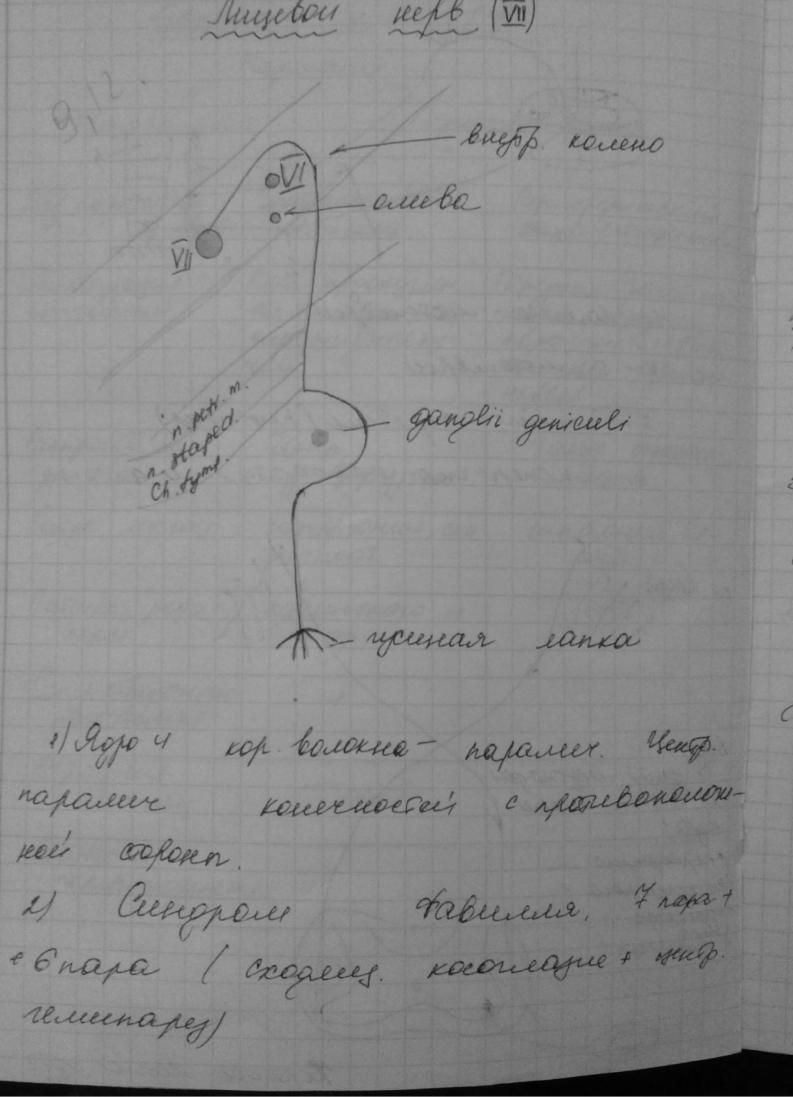 Лицевой нерв (VII)
9,12.
внутр. колено
VI
олива
VII
n. petr. m.
n. staped.
Ch. tymp.
ganglii geniculi
гусиная лапка
1) Ядро и кор. волокна - паралич. Центр.
паралич конечностей с противополож-
ной стороны.
2) Синдром Фавилля. 7 пара +
+ 6 пара (сходящ. косоглазие + центр.
гемипарез)